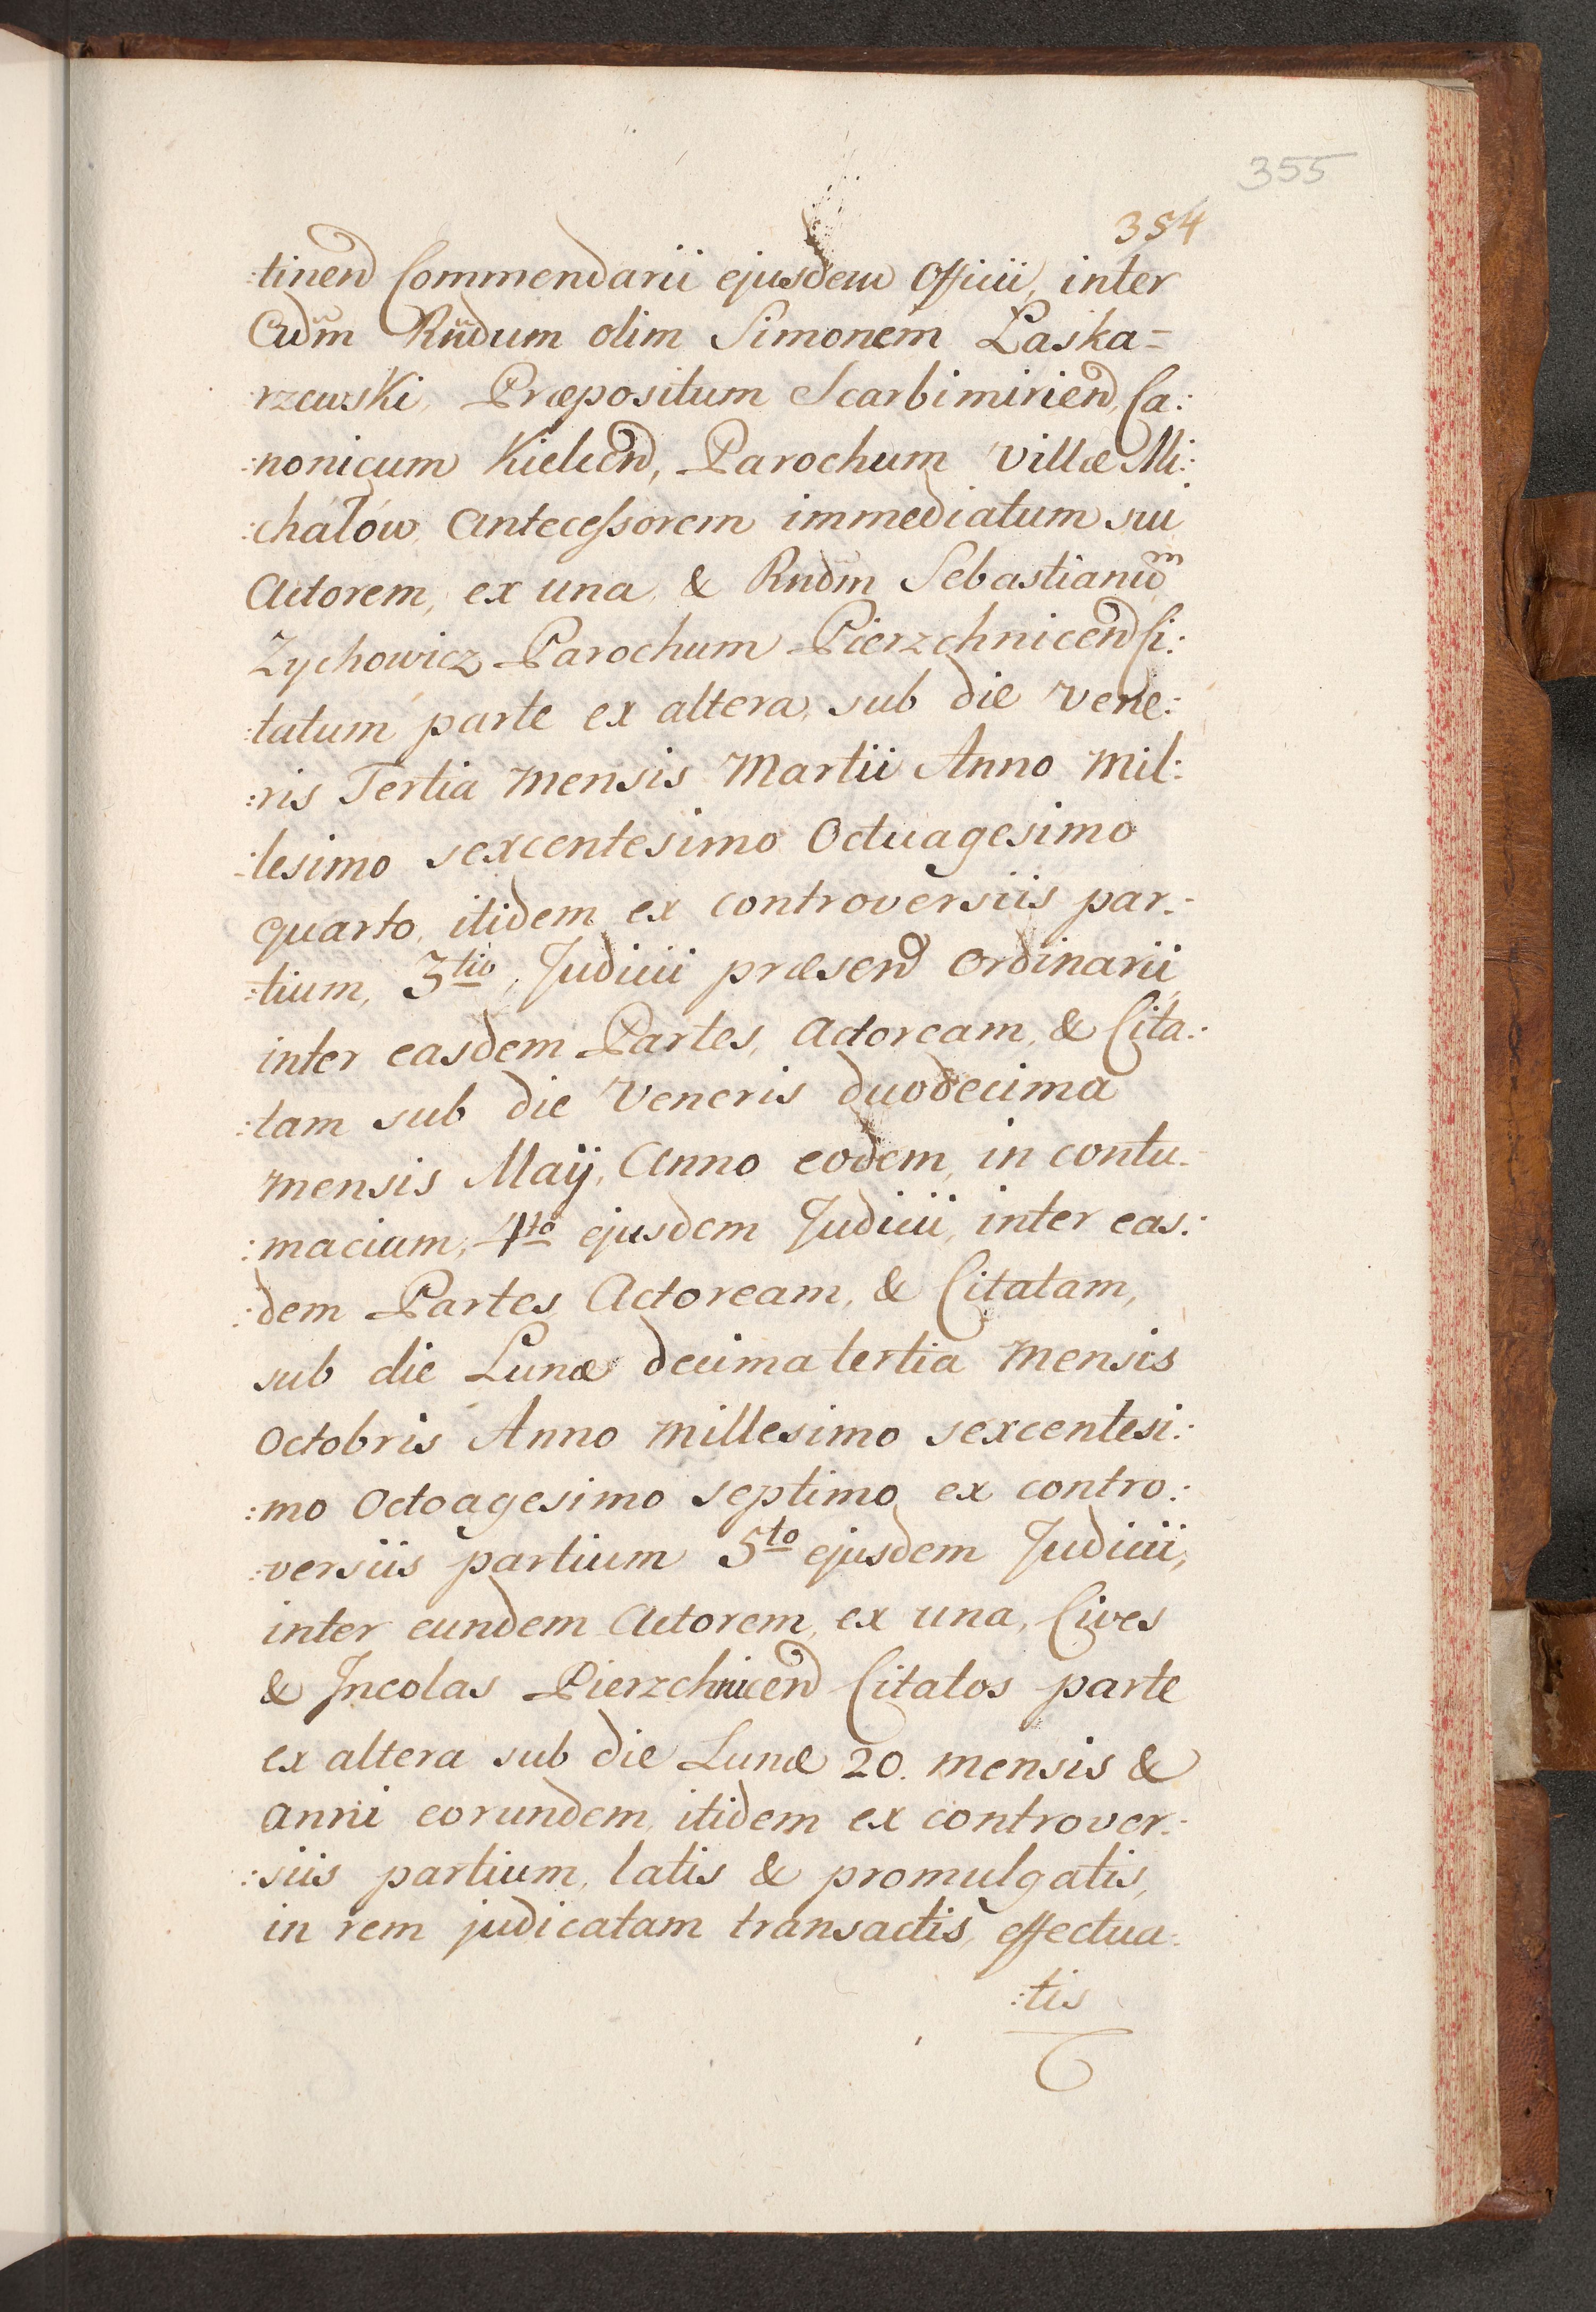 355
354
:tinen Commendarii ejusdem Officii, inter
Adm̃ Rñdum olim Simonem Łaska=
rzewski, Præpositum Scarbimirien, Ca:
:nonicum Kielcen, Parochum Villæ Mi:
:chałów, Antecessorem immediatum sui
Actorem, ex una, & Rndm̃ Sebastianum
Zychowicz Parochum Pierzchnicen Ci:
:tatum parte ex altera, sub die Vene:
:ris Tertia Mensis Martii Anno Mil:
:lesimo sexcentesimo Octuagesimo
quarto, itidem ex controversiis par:
:tium, 3tio, Judicii præsen Ordinarii,
inter easdem Partes, Actoream, & Cita:
:tam sub die Veneris duodecima
Mensis Maij, Anno eodem, in contu:
:macium, 4to ejusdem Judicii, inter eas:
:dem Partes Actoream, & Citatam,
sub die Lunæ decima tertia Mensis
Octobris Anno Millesimo sexcentesi:
:mo Octoagesimo septimo ex contro:
:versiis partium 5to ejusdem Judicii,
inter eundem Actorem, ex una, Cives
& Incolas Pierzchnicen Citatos parte
ex altera sub die Lunæ 20. mensis &
anni eorundem, itidem ex controver:
:siis partium, latis & promulgatis,
in rem judicatam transactis, effectua:
:tis